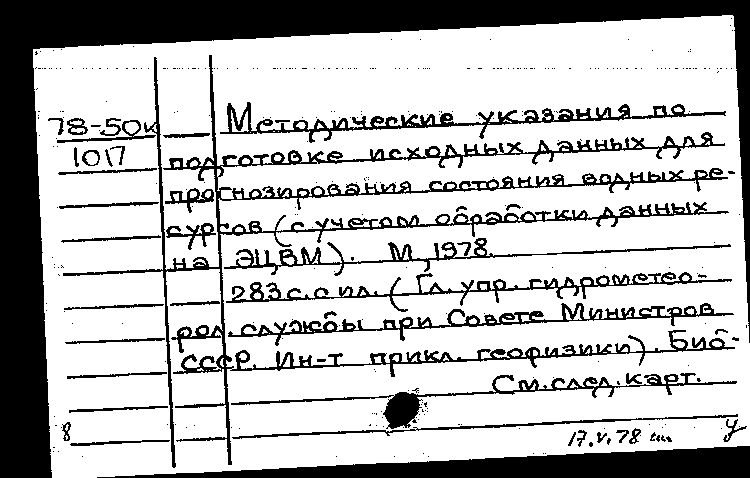 78-50к Методические указания по
1017 подготовке исходных данных для
прогнозирования состояния водных ре-
сурсов (с учетом обработки данных
на ЭЦВМ). М, 1978.
283 с. с ил. (Гл. упр. гидрометео-
рол. службы при Совете Министров
СССР. Ин-т прикл. геофизики). Биб-
См. след. карт.
8
17.V.78 У